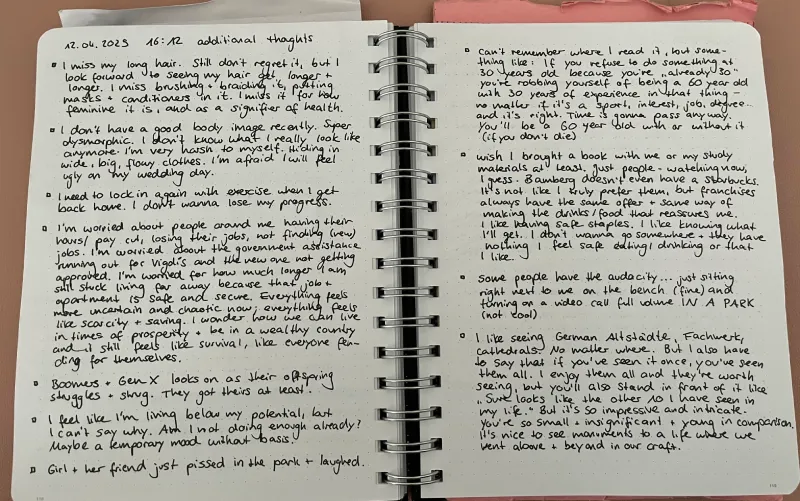 12.04.2025 16:12 additional thoghts
I miss my long hair. Still don't regret it, but I
look forward to seeing my hair get longer +
longer. I miss brushing + braiding it, putting
masks + conditioners in it. I miss it for how
feminine it is, and as a signifier of health.
I don't have a good body image recently. Super
dysmorphic. I don't know what I really look like
anymore. I'm very harsh to myself. Hiding in
wide, big, flowy clothes. I'm afraid I will feel
ugly on my wedding day.
I need to lock in again with exercise when I get
back home. I don't wanna lose my progress.
I'm worried about people around me having their
hours/ pay cut, losing their jobs, not finding (new)
jobs. I'm worried about the government assistance
running out for Vigdis and the new one not getting
approved. I'm worried for how much longer I am
still stuck living far away because that job +
apartment is safe and secure. Everything feels
more uncertain and chaotic now; everything feels
like scarcity + saving. I wonder how we can live
in times of prosperity + be in a wealthy country
and it still feels like survival, like everyone fen-
ding for themselves.
Boomers + Gen X looks on as their offspring
struggles + shrug. They got theirs at least.
I feel like I'm living below my potential, but
I can't say why. Am I not doing enough already?
Maybe a temporary mood without basis.
Girl + her friend just pissed in the park + laughed.
can't remember where I read it, but some-
thing like: If you refuse to do something at
30 years old because you're "already 30"
you're robbing yourself of being a 60 year old
with 30 years of experience in that thing –
no matter if it's a sport, interest, job, degree...
and it's right. Time is gonna pass anyway.
You'll be a 60 year old with or without it
(if you don't die)
wish I brought a book with me or my study
materials at least. Just people-watching now,
I guess. Bamberg doesn't even have a Starbucks.
It's not like I truly prefer them, but franchises
always have the same offer + same way of
making the drinks/food that reassures me.
I like having safe staples. I like knowing what
I'll get. I don't wanna go somewhere + they have
nothing I feel safe eating/drinking or that
I like.
Some people have the audacity... just sitting
right next to me on the bench (fine) and
turning on a video call full volume IN A PARK
(not cool)
I like seeing German Altstädte, Fachwerk,
Cathedrals. No matter where. But I also have
to say that if you've seen it once, you've seen
them all. I enjoy them all and they're worth
seeing, but you'll also stand in front of it like
"Sure looks like the other 10 I have seen in
my life." But it's so impressive and intricate.
You're so small + insignificant + young in comparison.
It's nice to see monuments to a life where we
went above + beyond in our craft.